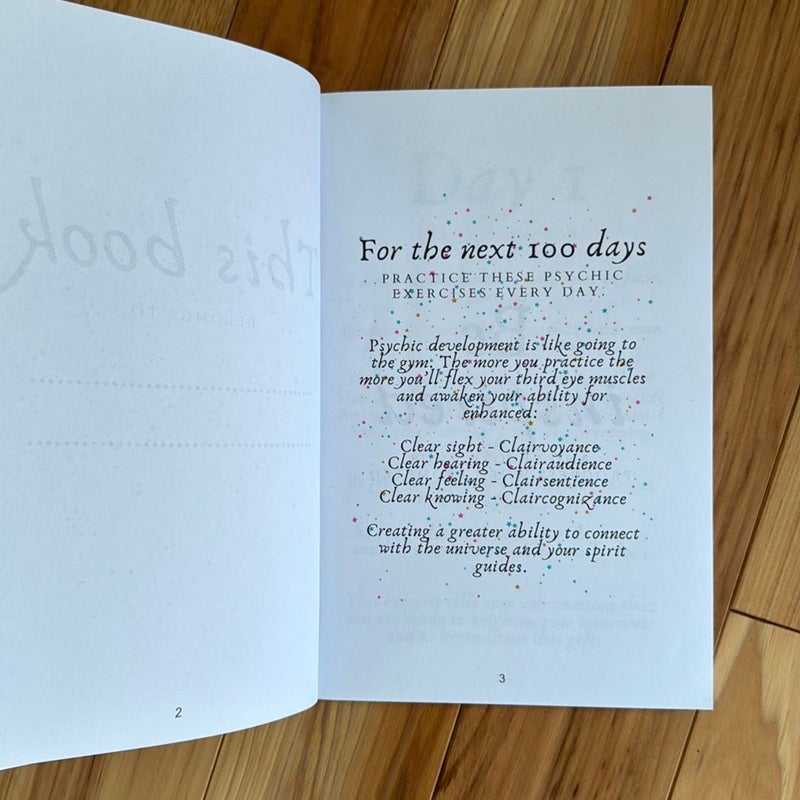 This book
BELONGS TO
2
For the next 100 days
PRACTICE THESE PSYCHIC
EXERCISES EVERY DAY.
Psychic development is like going to
the gym: The more you practice the
more you'll flex your third eye muscles
and awaken your ability for
enhanced:
Clear sight - Clairvoyance
Clear hearing - Clairaudience
Clear feeling - Clairsentience
Clear knowing - Claircognizance
Creating a greater ability to connect
with the universe and your spirit
guides.
3
Day 1